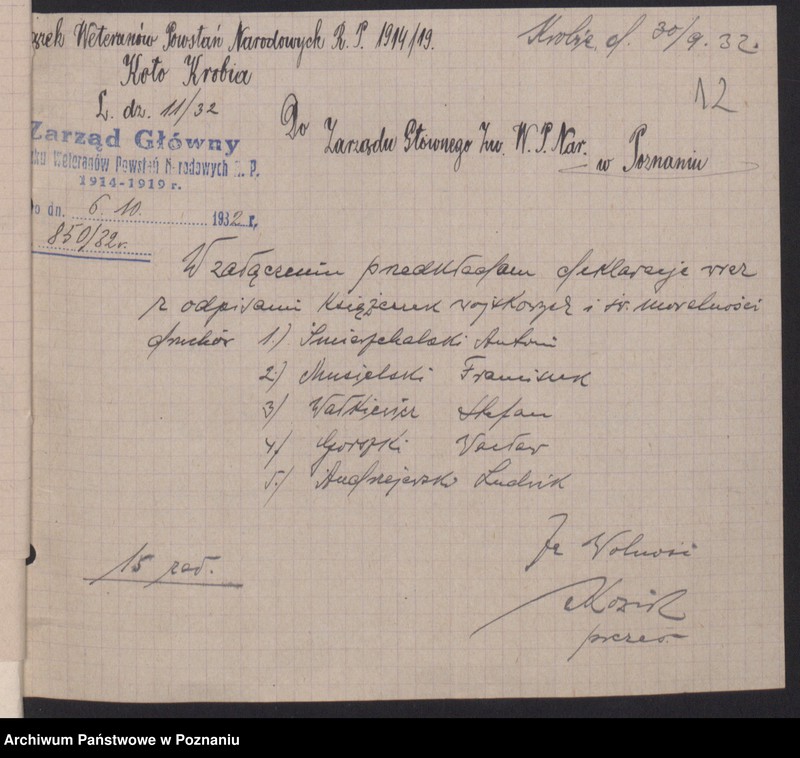 Weteranów Powstań Narodowych R. P. 1914/19.
Koło Krobia
L. dz. 11/32
d. 30/9. 32.
12
Do Zarządu Głównego Zw. W. P. Nar.
w Poznaniu
Zarząd Główny
Weteranów Powstań Narodowych R. P.
1914-1919 r.
dn. 6. 10. 1932 r.
850/32r.
W załączeniu przedkładam deklaracje wraz
z odpisami książeczek wojskowych i św. moralności
druhów 1.) Śmierzchalski Antoni
2.) Musielski Franciszek
3) Stefan
4) Gorszki Wacław
5.) Andrzejewski Ludwik
15 zał.
Za Wolność
Kozik
prezes
Archiwum Państwowe w Poznaniu